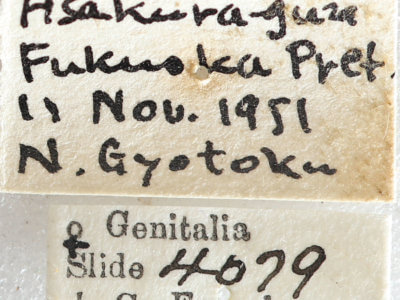 Asakura-gun
Fukuoka Pref.
11 Nov. 1951
N. Gyotoku
♀ Genitalia
Slide 4079